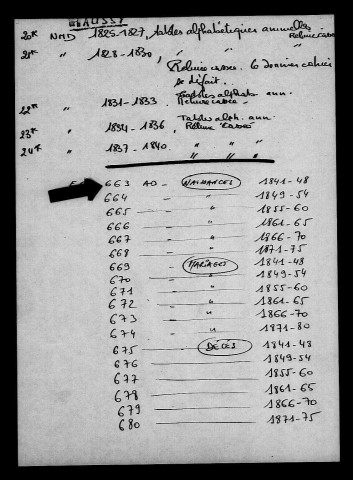 20* NMD 1825-1827, tables alphabétiques annuelles
Reliure cassée
21* " 1828-1830, " "
Reliure cassée. Le dernier cahier
se défait.
22* " 1831-1833. Tables alphab. ann.
Reliure cassée.
23* " 1834-1836, Tables alph. ann.
Reliure cassée
24* " 1837-1840. " " "
663 AD - NAISSANCES 1841-48
664 - " 1849-54
665 - " 1855-60
666 - " 1861-65
667 - " 1866-70
668 - " 1871-75
669 - MARIAGES 1841-48
670 - " 1849-54
671 - " 1855-60
672 - " 1861-65
673 - " 1866-70
674 - " 1871-80
675 DÉCÈS 1841-48
676 1849-54
677 1855-60
678 1861-65
679 1866-70
680 1871-75